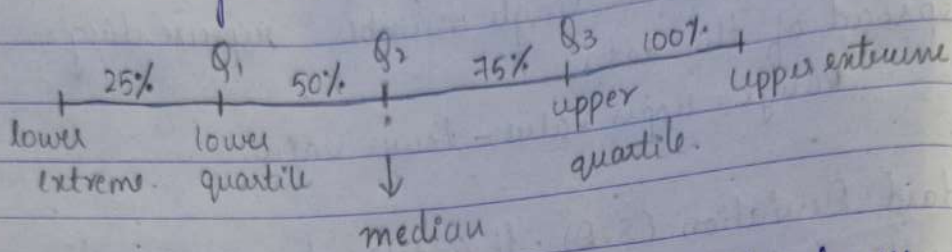 25% Q1 50% Q2 75% Q3 100%
lower extreme. lower quartile upper quartile. upper extreme
median